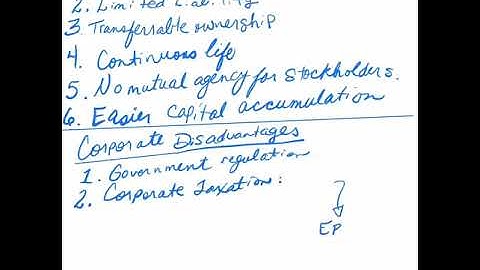 2. Limited Liability
3. Transferrable ownership
4. Continuous life
5. No mutual agency for stockholders.
6. Easier capital accumulation
Corporate Disadvantages
1. Government regulation
2. Corporate Taxation:
EP